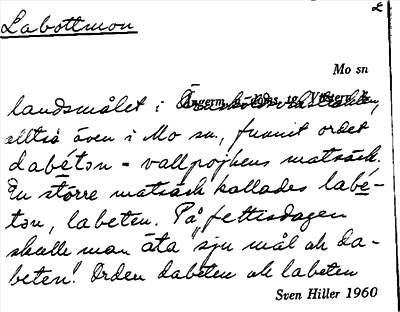 Labottmon
Mo sn
landsmålet i
alltså även i Mo sn, funnit ordet
dabéton = vallpojkens matsäck.
En större matsäck kallades labé-
ton, labeten. På fettisdagen
skulle man äta "sju mål ok da-
beten". Orden dabeten ok labeten
Sven Hiller 1960